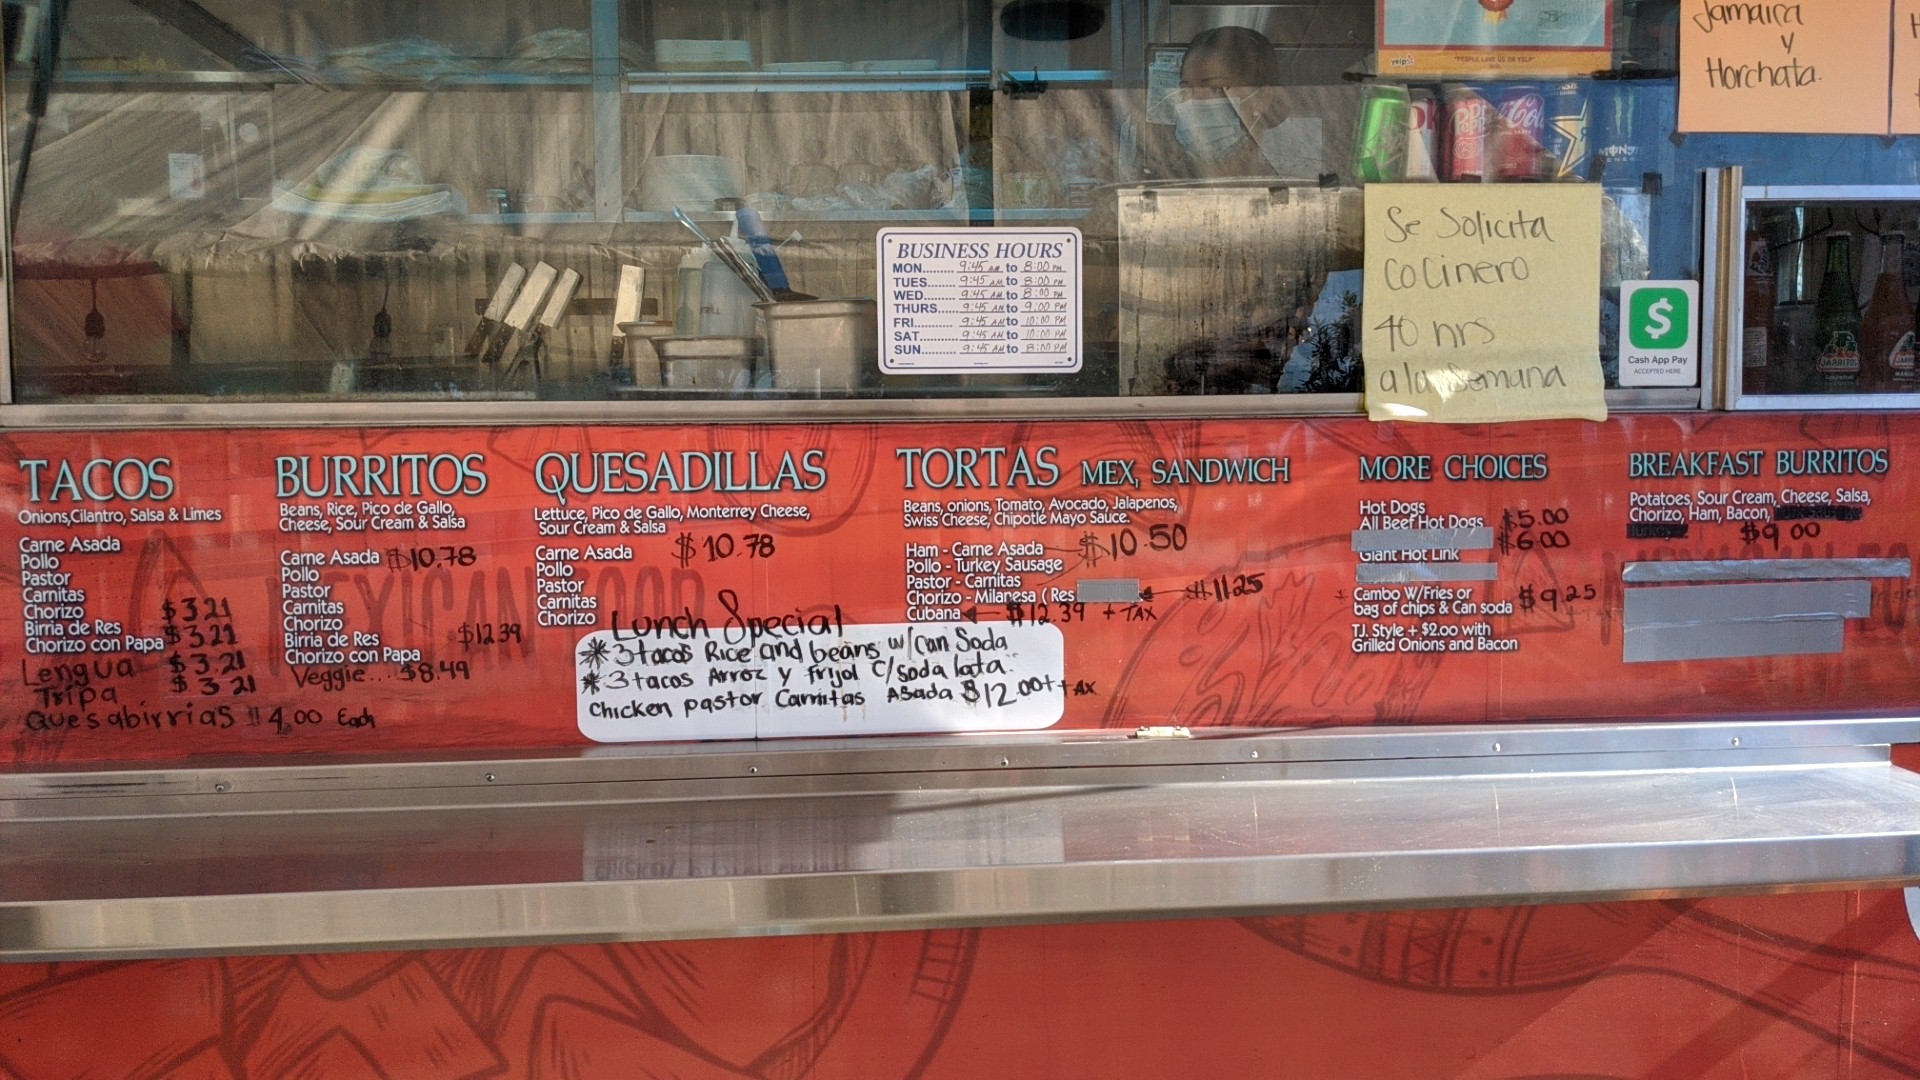 Jamaica
y
Horchata.
yelp
"PEOPLE LOVE US ON YELP"
Se Solicita
Cocinero
40 hrs
a la Semana
BUSINESS HOURS
MON......... 9:45 AM to 8:00 PM
TUES......... 9:45 AM to 8:00 PM
WED......... 9:45 AM to 8:00 PM
THURS......... 9:45 AM to 9:00 PM
FRI......... 9:45 AM to 10:00 PM
SAT......... 9:45 AM to 10:00 PM
SUN......... 9:45 AM to 8:00 PM
$
Cash App Pay
ACCEPTED HERE
JARRITOS
TACOS
Onions,Cilantro, Salsa & Limes
Carne Asada
Pollo
Pastor
Carnitas
Chorizo $3.21
Birria de Res $3.21
Chorizo con Papa
Lengua $3.21
Tripa $3.21
Quesabirrias $4.00 Each
BURRITOS
Beans, Rice, Pico de Gallo,
Cheese, Sour Cream & Salsa
Carne Asada $10.78
Pollo
Pastor
Carnitas
Chorizo
Birria de Res $12.39
Chorizo con Papa
Veggie... $8.49
QUESADILLAS
Lettuce, Pico de Gallo, Monterrey Cheese,
Sour Cream & Salsa
Carne Asada $10.78
Pollo
Pastor
Carnitas
Chorizo
Lunch Special
* 3 tacos Rice and beans w/Can Soda
* 3 tacos Arroz y frijol C/Soda lata.
Chicken pastor Carnitas Asada $12.00 + tAx
TORTAS MEX, SANDWICH
Beans, onions, Tomato, Avocado, Jalapenos,
Swiss Cheese, Chipotle Mayo Sauce.
Ham - Carne Asada $10.50
Pollo - Turkey Sausage
Pastor - Carnitas
Chorizo - Milanesa ( Res $11.25
Cubana $12.39 + TAX
MORE CHOICES
Hot Dogs
All Beef Hot Dogs $5.00
$6.00
Giant Hot Link
Cambo W/Fries or
bag of chips & Can soda $9.25
T.J. Style + $2.00 with
Grilled Onions and Bacon
BREAKFAST BURRITOS
Potatoes, Sour Cream, Cheese, Salsa,
Chorizo, Ham, Bacon,
$9.00